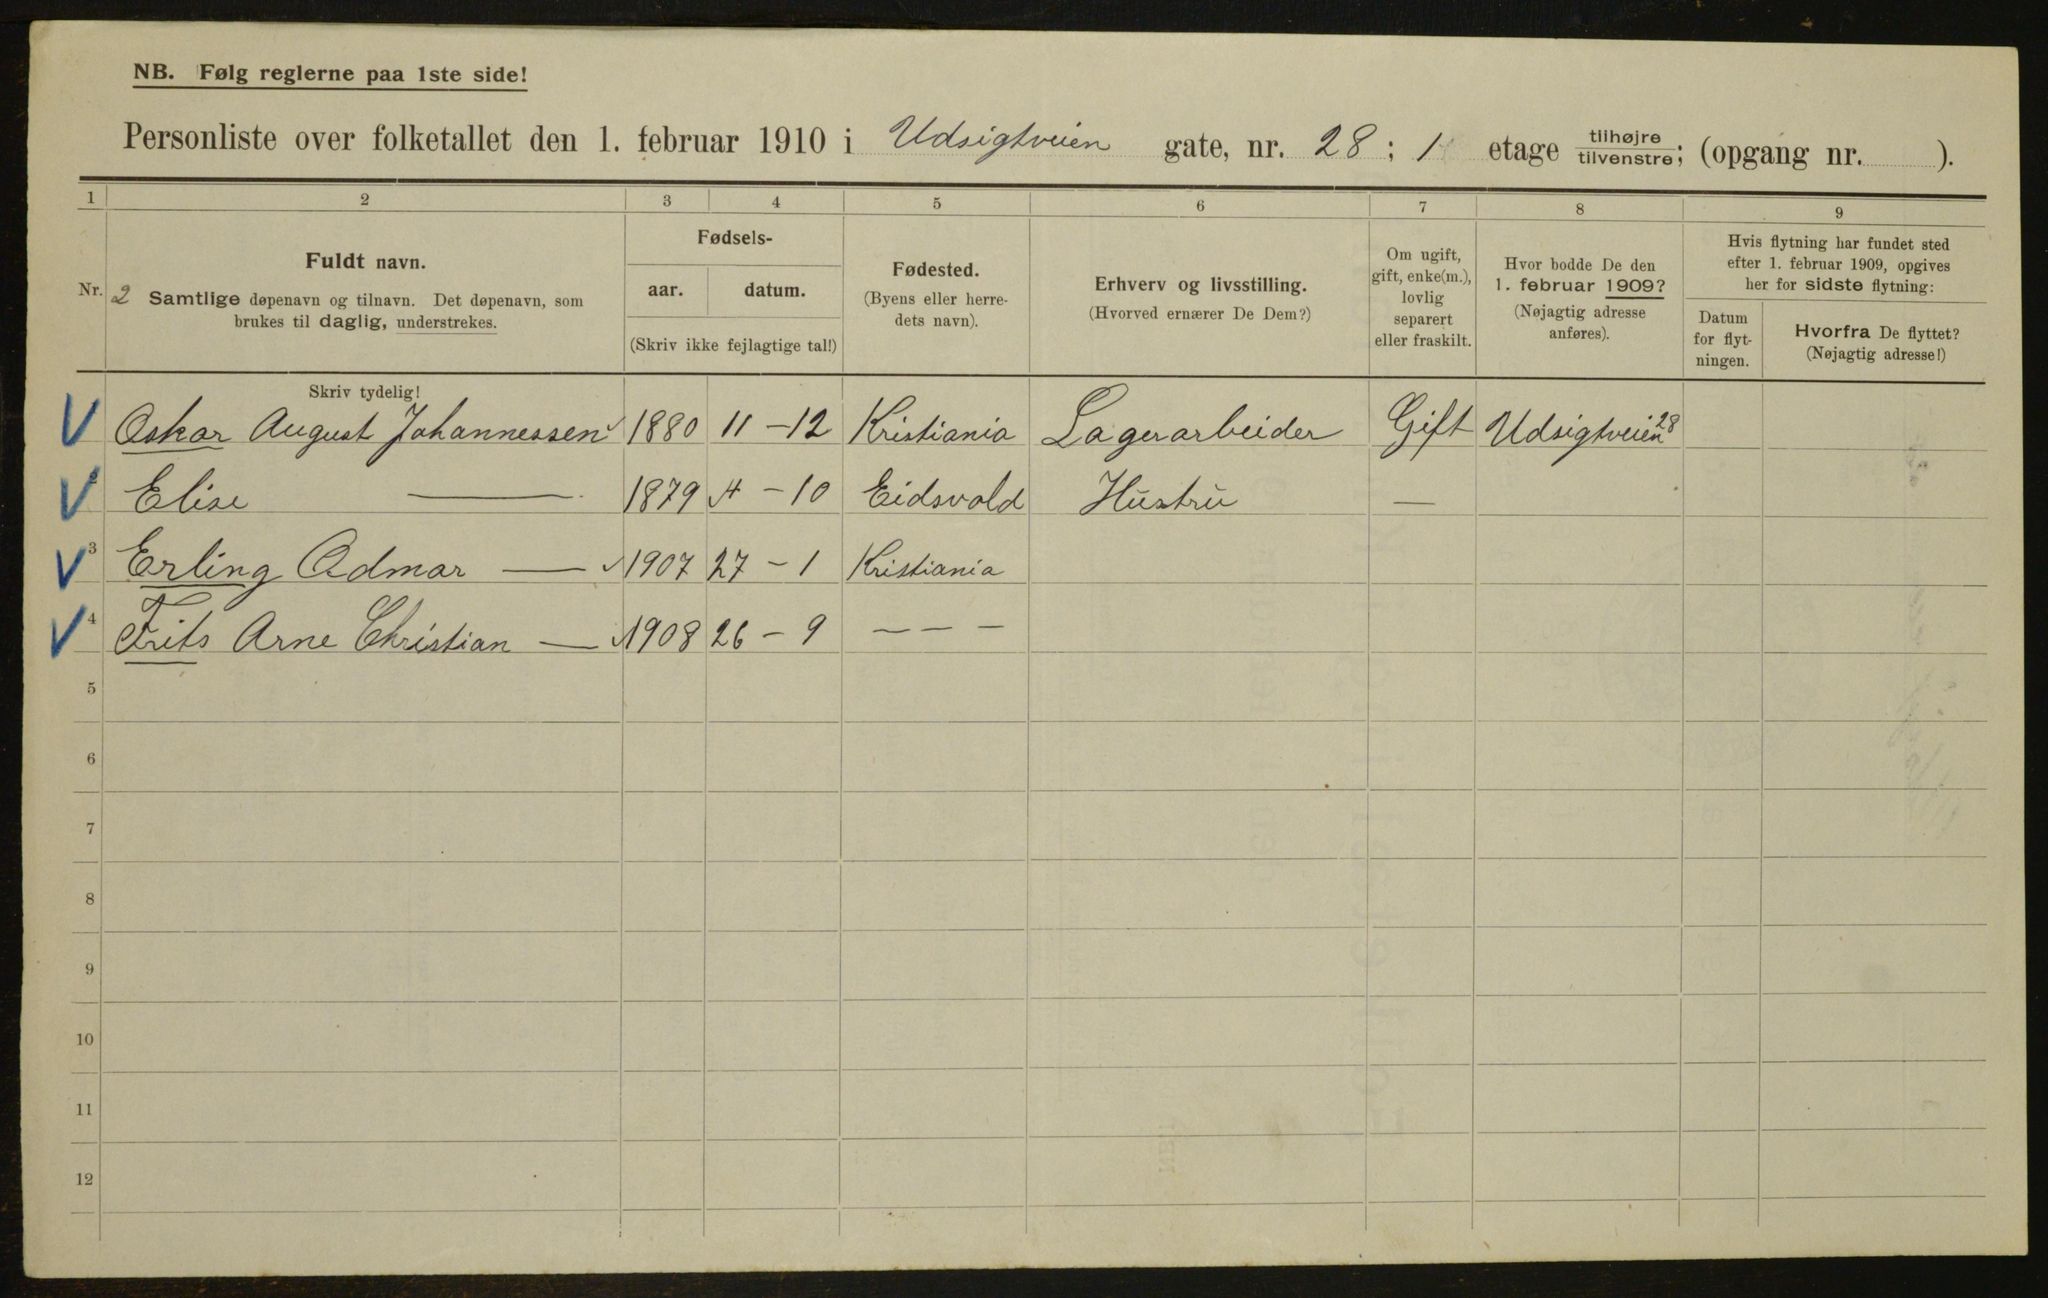 NB. Følg reglerne paa 1ste side!
Personliste over folketallet den 1. februar 1910 i Udsigtveien gate, nr. 28; 1 etage tilhøjre tilvenstre; (opgang nr. ).
1 2 3 4 5 6 7 8 9
Nr. 2
Fuldt navn.
Samtlige døpenavn og tilnavn. Det døpenavn, som
brukes til daglig, understrekes.
Fødsels-
aar. datum.
(Skriv ikke fejlagtige tal!)
Fødested.
(Byens eller herre-
dets navn).
Erhverv og livsstilling.
(Hvorved ernærer De Dem?)
Om ugift,
gift, enke(m.),
lovlig
separert
eller fraskilt.
Hvor bodde De den
1. februar 1909?
(Nøjagtig adresse
anføres).
Hvis flytning har fundet sted
efter 1. februar 1909, opgives
her for sidste flytning:
Datum
for flyt-
ningen.
Hvorfra De flyttet?
(Nøjagtig adresse!)
Skriv tydelig!
Oskar August Johannessen 1880 11 - 12 Kristiania Lagerarbeider Gift Udsigtveien 28
Elise — 1879 4 - 10 Eidsvold Hustru —
3 Erling Admar — 1907 27 - 1 Kristiania
4 Frits Arne Christian — 1908 26 - 9 - - -
5
6
7
8
9
10
11
12